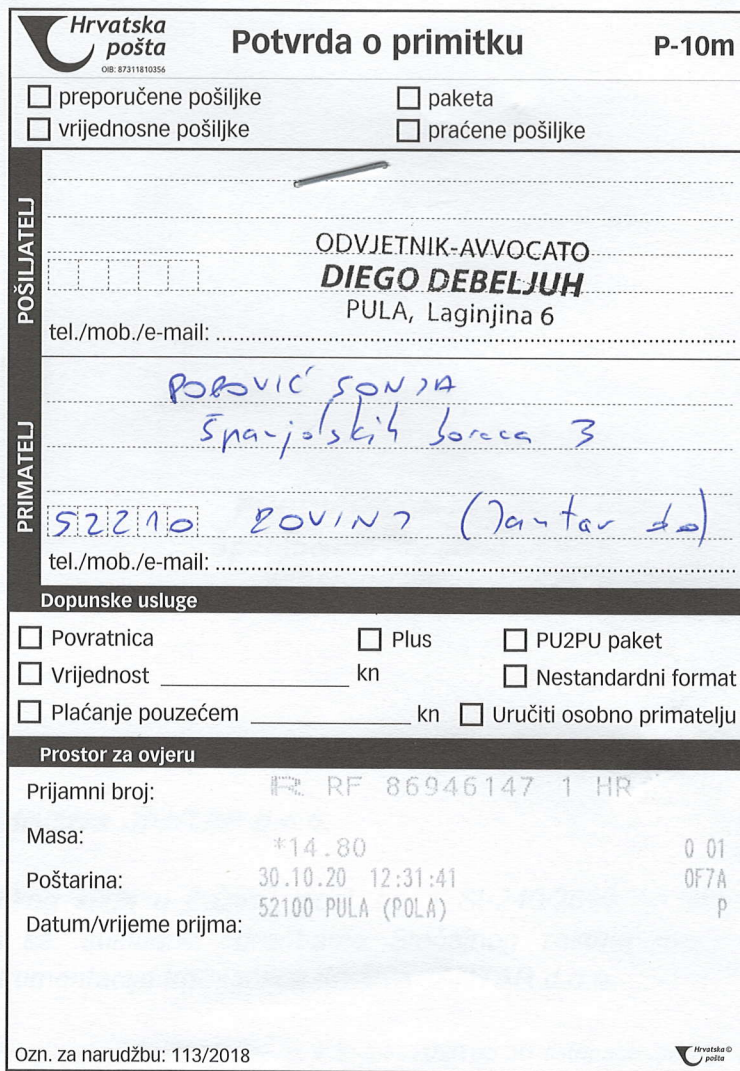 Hrvatska
pošta
OIB: 87311810356
Potvrda o primitku
P-10m
preporučene pošiljke
paketa
vrijednosne pošiljke
praćene pošiljke
POŠILJATELJ
ODVJETNIK-AVVOCATO
DIEGO DEBELJUH
PULA, Laginjina 6
tel./mob./e-mail:
PRIMATELJ
POPOVIĆ SONJA
Španjolskih boraca 3
52210 ROVINJ (Jantar doo)
tel./mob./e-mail:
Dopunske usluge
Povratnica
Plus
PU2PU paket
Vrijednost kn
Nestandardni format
Plaćanje pouzećem kn
Uručiti osobno primatelju
Prostor za ovjeru
Prijamni broj: R RF 86946147 1 HR
Masa: *14.80 0 01
Poštarina: 30.10.20 12:31:41 0F7A
Datum/vrijeme prijma: 52100 PULA (POLA) P
Ozn. za narudžbu: 113/2018
Hrvatska ©
pošta